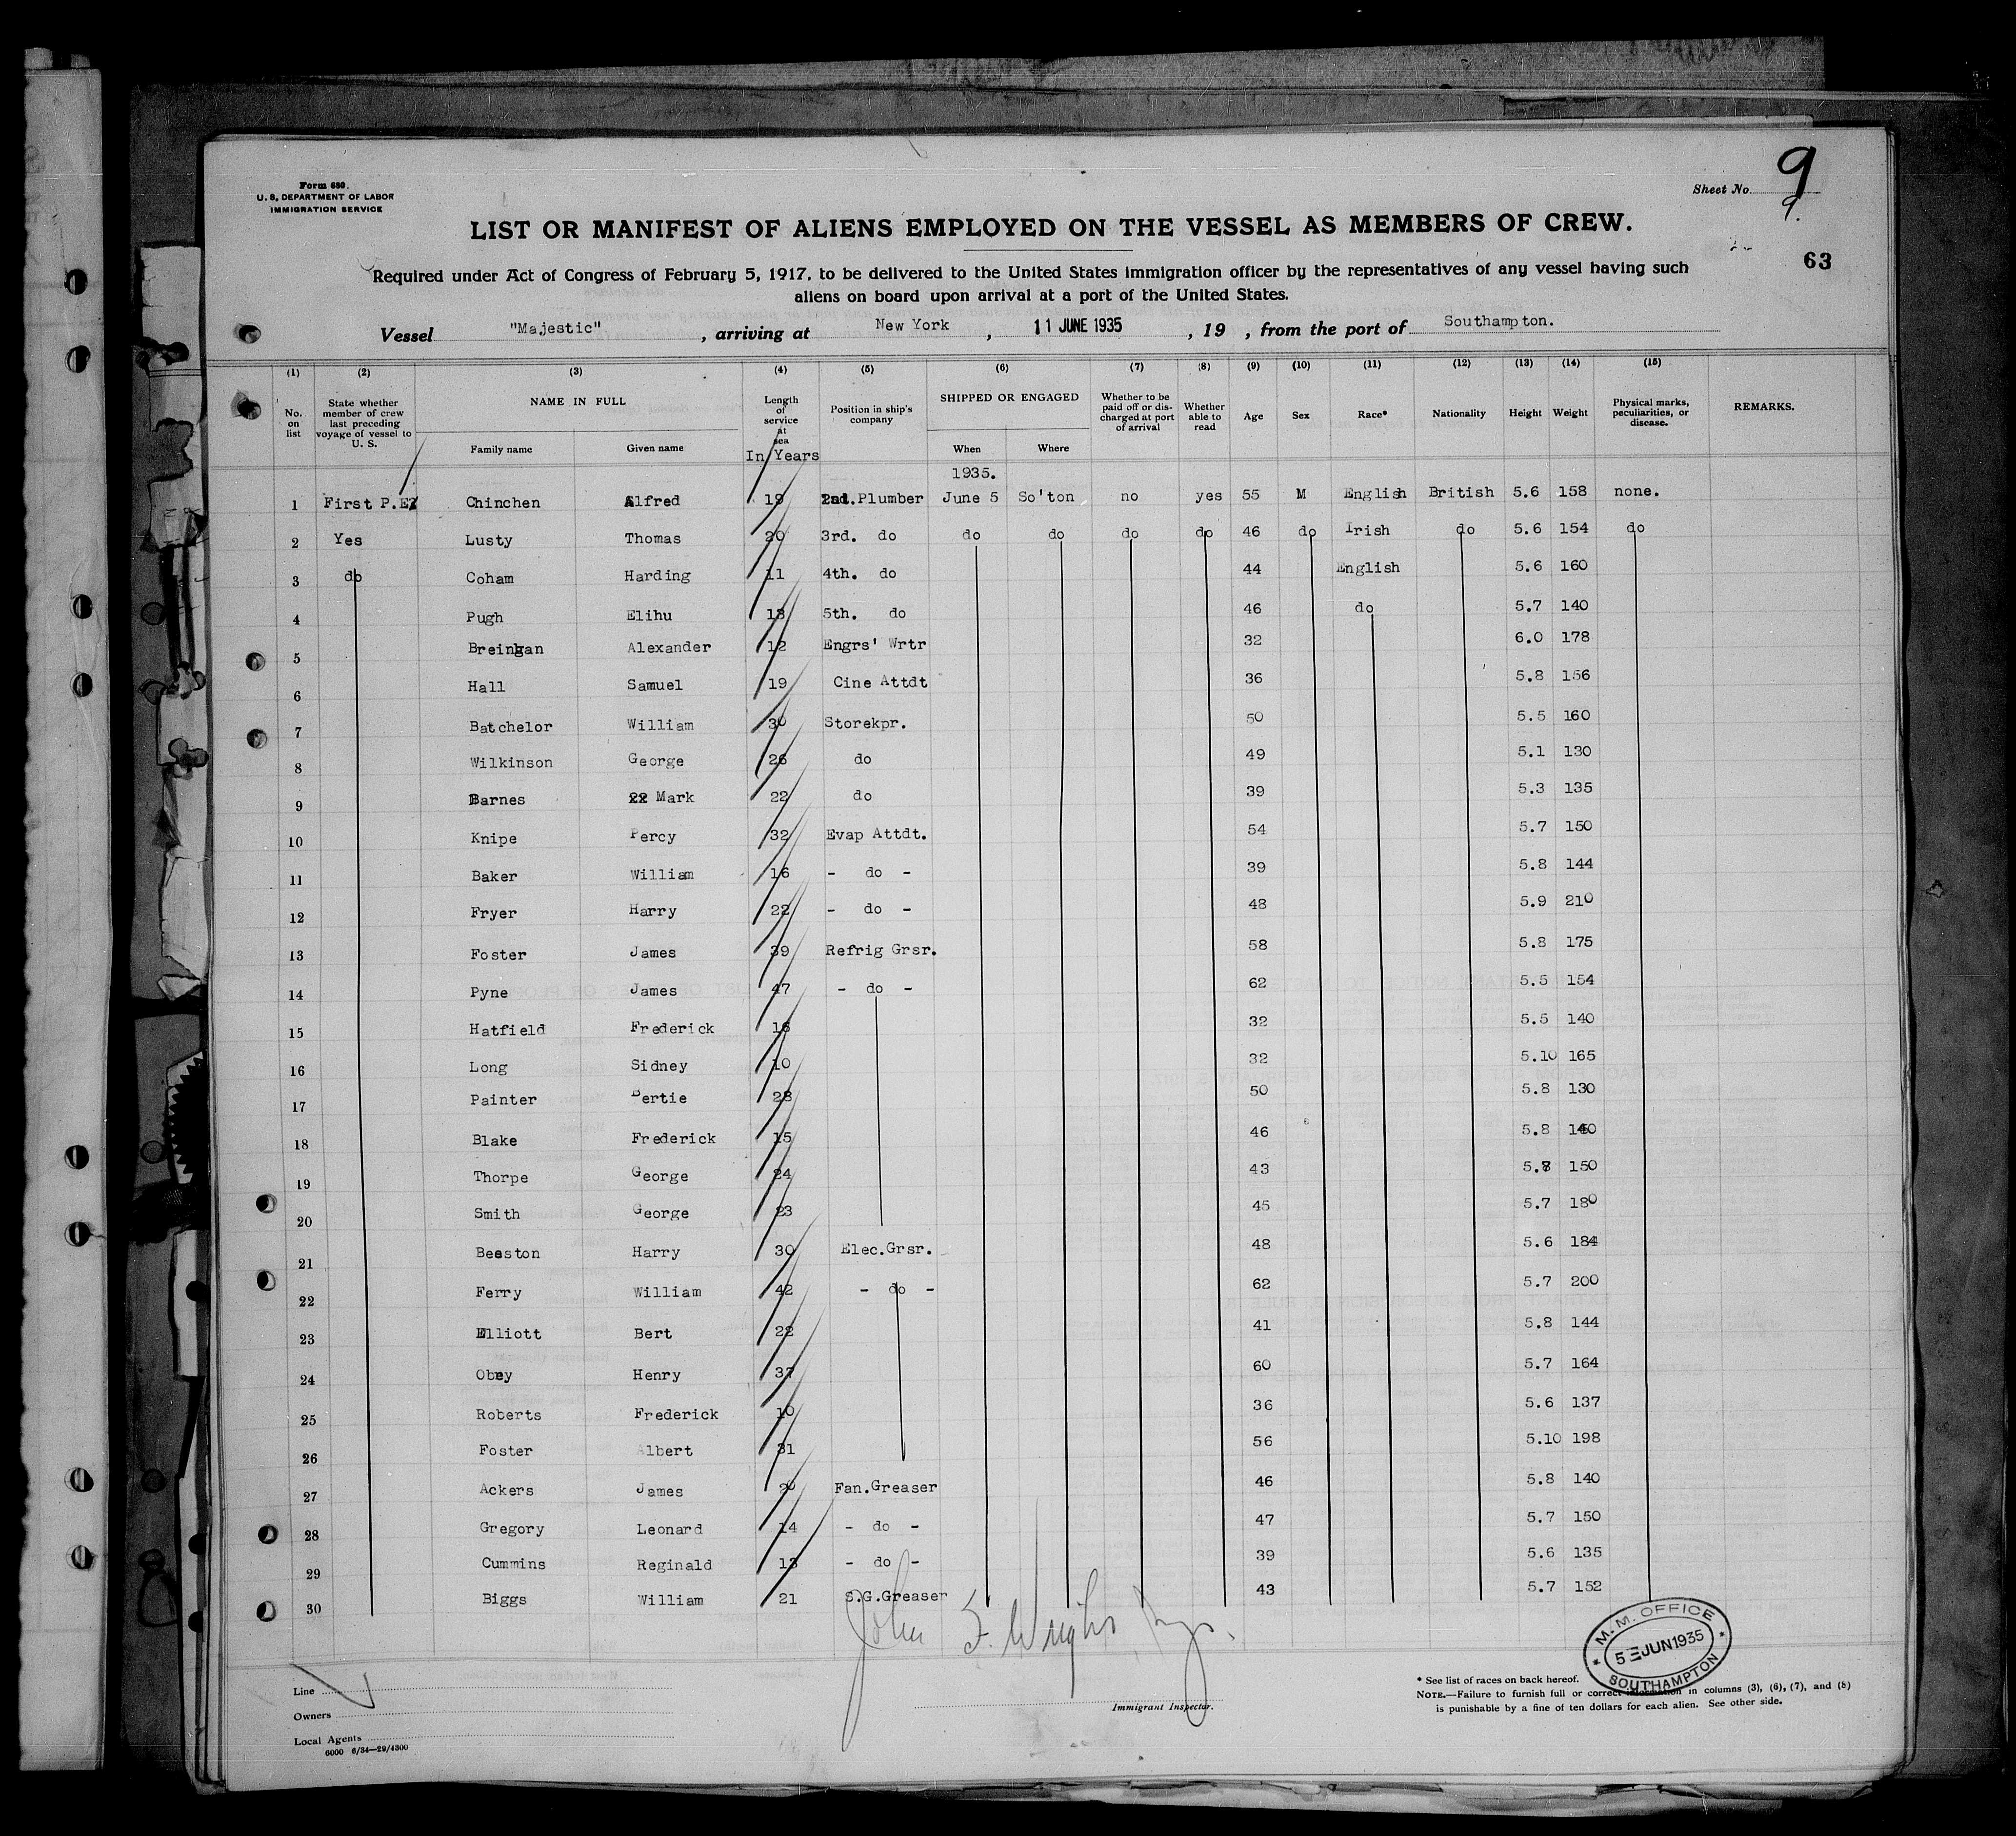 Form 680.
U. S. DEPARTMENT OF LABOR
IMMIGRATION SERVICE
Sheet No. 9
9.
LIST OR MANIFEST OF ALIENS EMPLOYED ON THE VESSEL AS MEMBERS OF CREW.
63
Required under Act of Congress of February 5, 1917, to be delivered to the United States immigration officer by the representatives of any vessel having such
aliens on board upon arrival at a port of the United States.
Vessel "Majestic" , arriving at New York , 11 JUNE 1935 , 19 , from the port of Southampton.
(1) (2) (3) (4) (5) (6) (7) (8) (9) (10) (11) (12) (13) (14) (15)
No. on list State whether member of crew last preceding voyage of vessel to U. S. NAME IN FULL Family name Given name Length of service at sea In Years Position in ship's company SHIPPED OR ENGAGED When Where Whether to be paid off or discharged at port of arrival Whether able to read Age Sex Race* Nationality Height Weight Physical marks, peculiarities, or disease. REMARKS.
1935.
1 First P.E. Chinchen Alfred 19 2nd.Plumber June 5 So'ton no yes 55 M English British 5.6 158 none.
2 Yes Lusty Thomas 20 3rd. do do do do do 46 do Irish do 5.6 154 do
3 do Coham Harding 11 4th. do 44 English 5.6 160
4 Pugh Elihu 18 5th. do 46 do 5.7 140
5 Breingan Alexander 12 Engrs' Wrtr 32 6.0 178
6 Hall Samuel 19 Cine Attdt 36 5.8 156
7 Batchelor William 30 Storekpr. 50 5.5 160
8 Wilkinson George 26 do 49 5.1 130
9 Barnes 22 Mark 22 do 39 5.3 135
10 Knipe Percy 32 Evap Attdt. 54 5.7 150
11 Baker William 16 - do - 39 5.8 144
12 Fryer Harry 22 - do - 48 5.9 210
13 Foster James 39 Refrig Grsr. 58 5.8 175
14 Pyne James 47 - do - 62 5.5 154
15 Hatfield Frederick 16 32 5.5 140
16 Long Sidney 10 32 5.10 165
17 Painter Bertie 28 50 5.8 130
18 Blake Frederick 15 46 5.8 140
19 Thorpe George 24 43 5.8 150
20 Smith George 23 45 5.7 180
21 Beeston Harry 30 Elec.Grsr. 48 5.6 184
22 Ferry William 42 - do - 62 5.7 200
23 Elliott Bert 22 41 5.8 144
24 Obey Henry 37 60 5.7 164
25 Roberts Frederick 10 36 5.6 137
26 Foster Albert 31 56 5.10 198
27 Ackers James 20 Fan.Greaser 46 5.8 140
28 Gregory Leonard 14 - do - 47 5.7 150
29 Cummins Reginald 13 - do - 39 5.6 135
30 Biggs William 21 S.G.Greaser 43 5.7 152
John F. Wright
Immigrant Inspector.
M. M. OFFICE
5 JUN 1935
SOUTHAMPTON
Line
Owners
Local Agents
6000 6/34—29/4300
* See list of races on back hereof.
NOTE.—Failure to furnish full or correct information in columns (3), (6), (7), and (8)
is punishable by a fine of ten dollars for each alien. See other side.